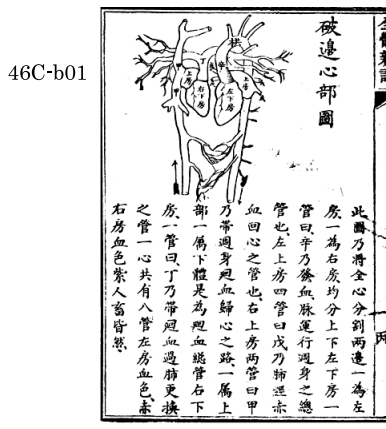 46C-b01
破邊心部圖
丁
辛
上房
右下房
左下房
上房
甲
此圖乃將全心分割兩邊一為左
房、一為右房、均分上下左下房一
管曰辛乃發血脉運行週身之總
管也、左上房四管曰戊乃肺還赤
血回心之管也、右上房兩管曰甲
乃帶週身廻血歸心之路、一屬上
部一屬下體是為廻血總管右下
房、一管曰丁乃帶廻血過肺更換
之管一心共有八管左房血色赤
右房血色紫人畜皆然、